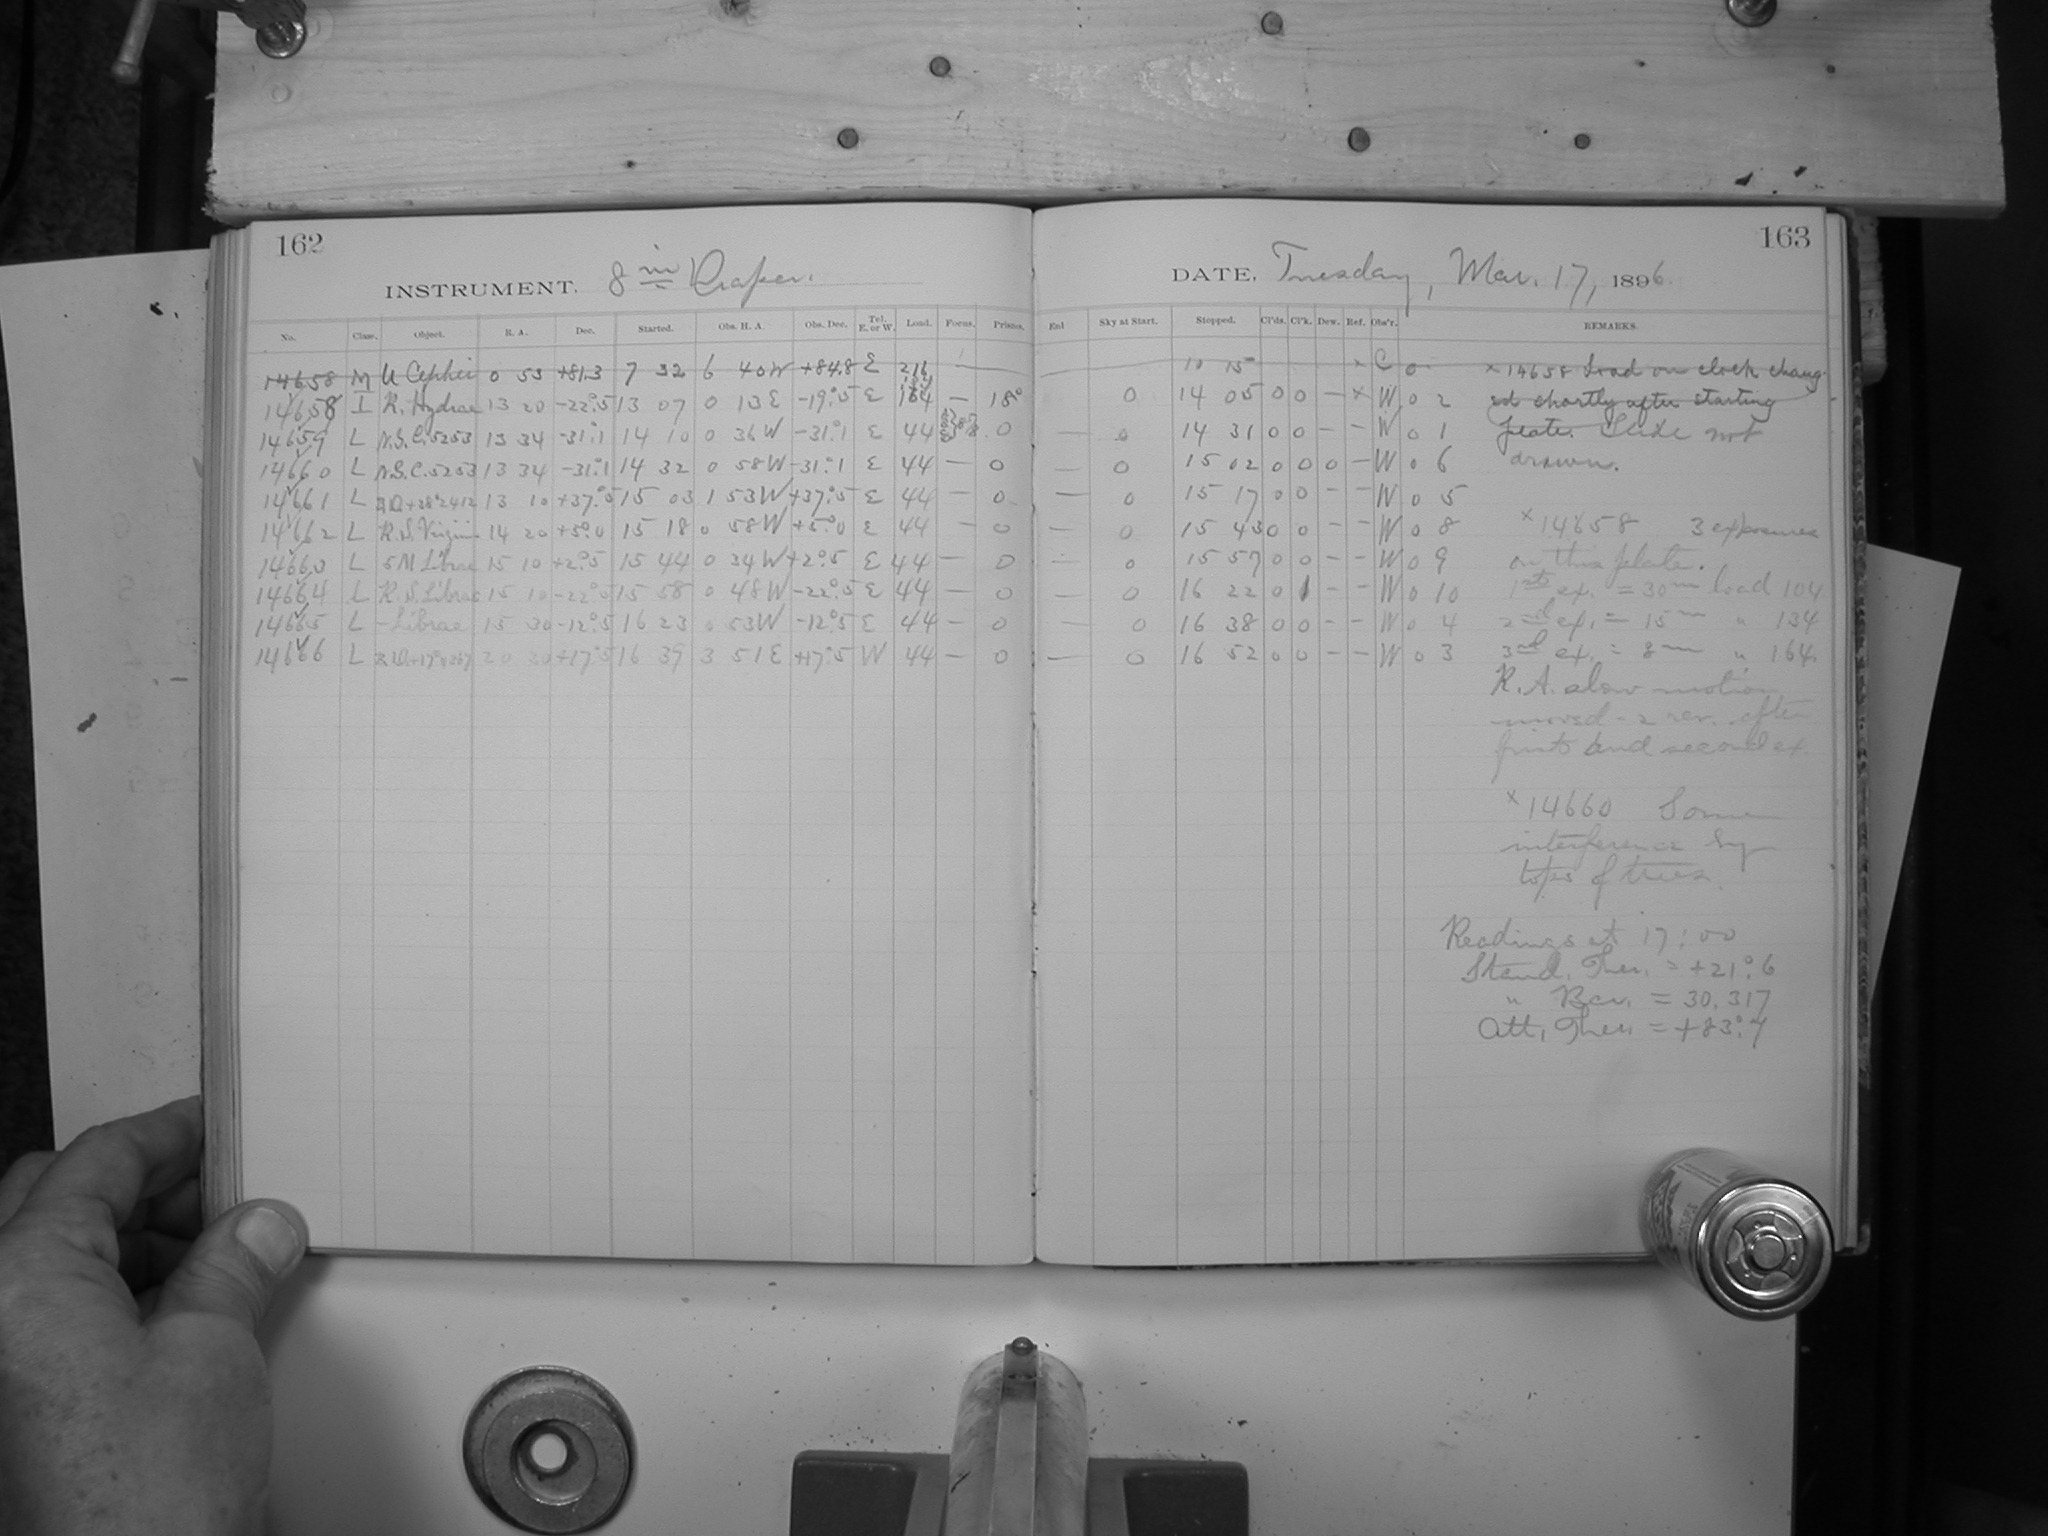 162
INSTRUMENT. 8 in Draper.
No. Class. Object. R. A. Dec. Started. Obs. H. A. Obs. Dec. Tel. E. or W. Load. Focus. Prisms.
14658 M U Cephei 0 53 +81.3 7 32 6 40W +84.8 E 216
14658 I R. Hydrae 13 20 -22°.5 13 07 0 13E -19°.5 E 164 — 15°
14659 L N.G.C. 5253 13 34 -31°.1 14 10 0 36W -31°.1 E 44 0
14660 L N.G.C. 5253 13 34 -31°.1 14 32 0 58W -31°.1 E 44 — 0
14661 L B.D.+38°2412 13 10 +37°.5 15 03 1 53W +37°.5 E 44 — 0
14662 L R.S. Virginis 14 20 +5°.0 15 18 0 58W +5°.0 E 44 — 0
14663 L 5M Librae 15 10 +2°.5 15 44 0 34W +2°.5 E 44 — 0
14664 L R.S. Librae 15 10 -22°.5 15 58 0 48W -22°.5 E 44 — 0
14665 L - Librae 15 30 -12°.5 16 23 0 53W -12°.5 E 44 — 0
14666 L B.D.+17°4367 20 30 +17°.5 16 39 3 51E +17°.5 W 44 — 0
163
DATE, Tuesday, Mar. 17, 1896.
Ent Sky at Start. Stopped. Cl'ds. Cl'k. Dew. Ref. Obs'r. REMARKS.
10 15 x C 0 x 14658 Load on clock chang-
0 14 05 0 0 — x W 0 2 ed shortly after starting
— 0 14 31 0 0 - - W 0 1 plate. Slide not
— 0 15 02 0 0 0 — W 0 6 drawn.
— 0 15 17 0 0 - - W 0 5
— 0 15 43 0 0 - - W 0 8 x 14658 3 exposures
— 0 15 57 0 0 - - W 0 9 on this plate.
— 0 16 22 0 1 - - W 0 10 1st ex. = 30m load 104
— 0 16 38 0 0 - - W 0 4 2nd ex. = 15m " 134
— 0 16 52 0 0 - - W 0 3 3rd ex. = 8m " 164.
R. A. slow motion
moved - 2 rev. after
first and second ex.
x 14660 Some
interference by
tops of trees.
Readings at 17:00
Stand. Ther. = +21°.6
" Bar. = 30.317
Att. Ther. = +83°.7